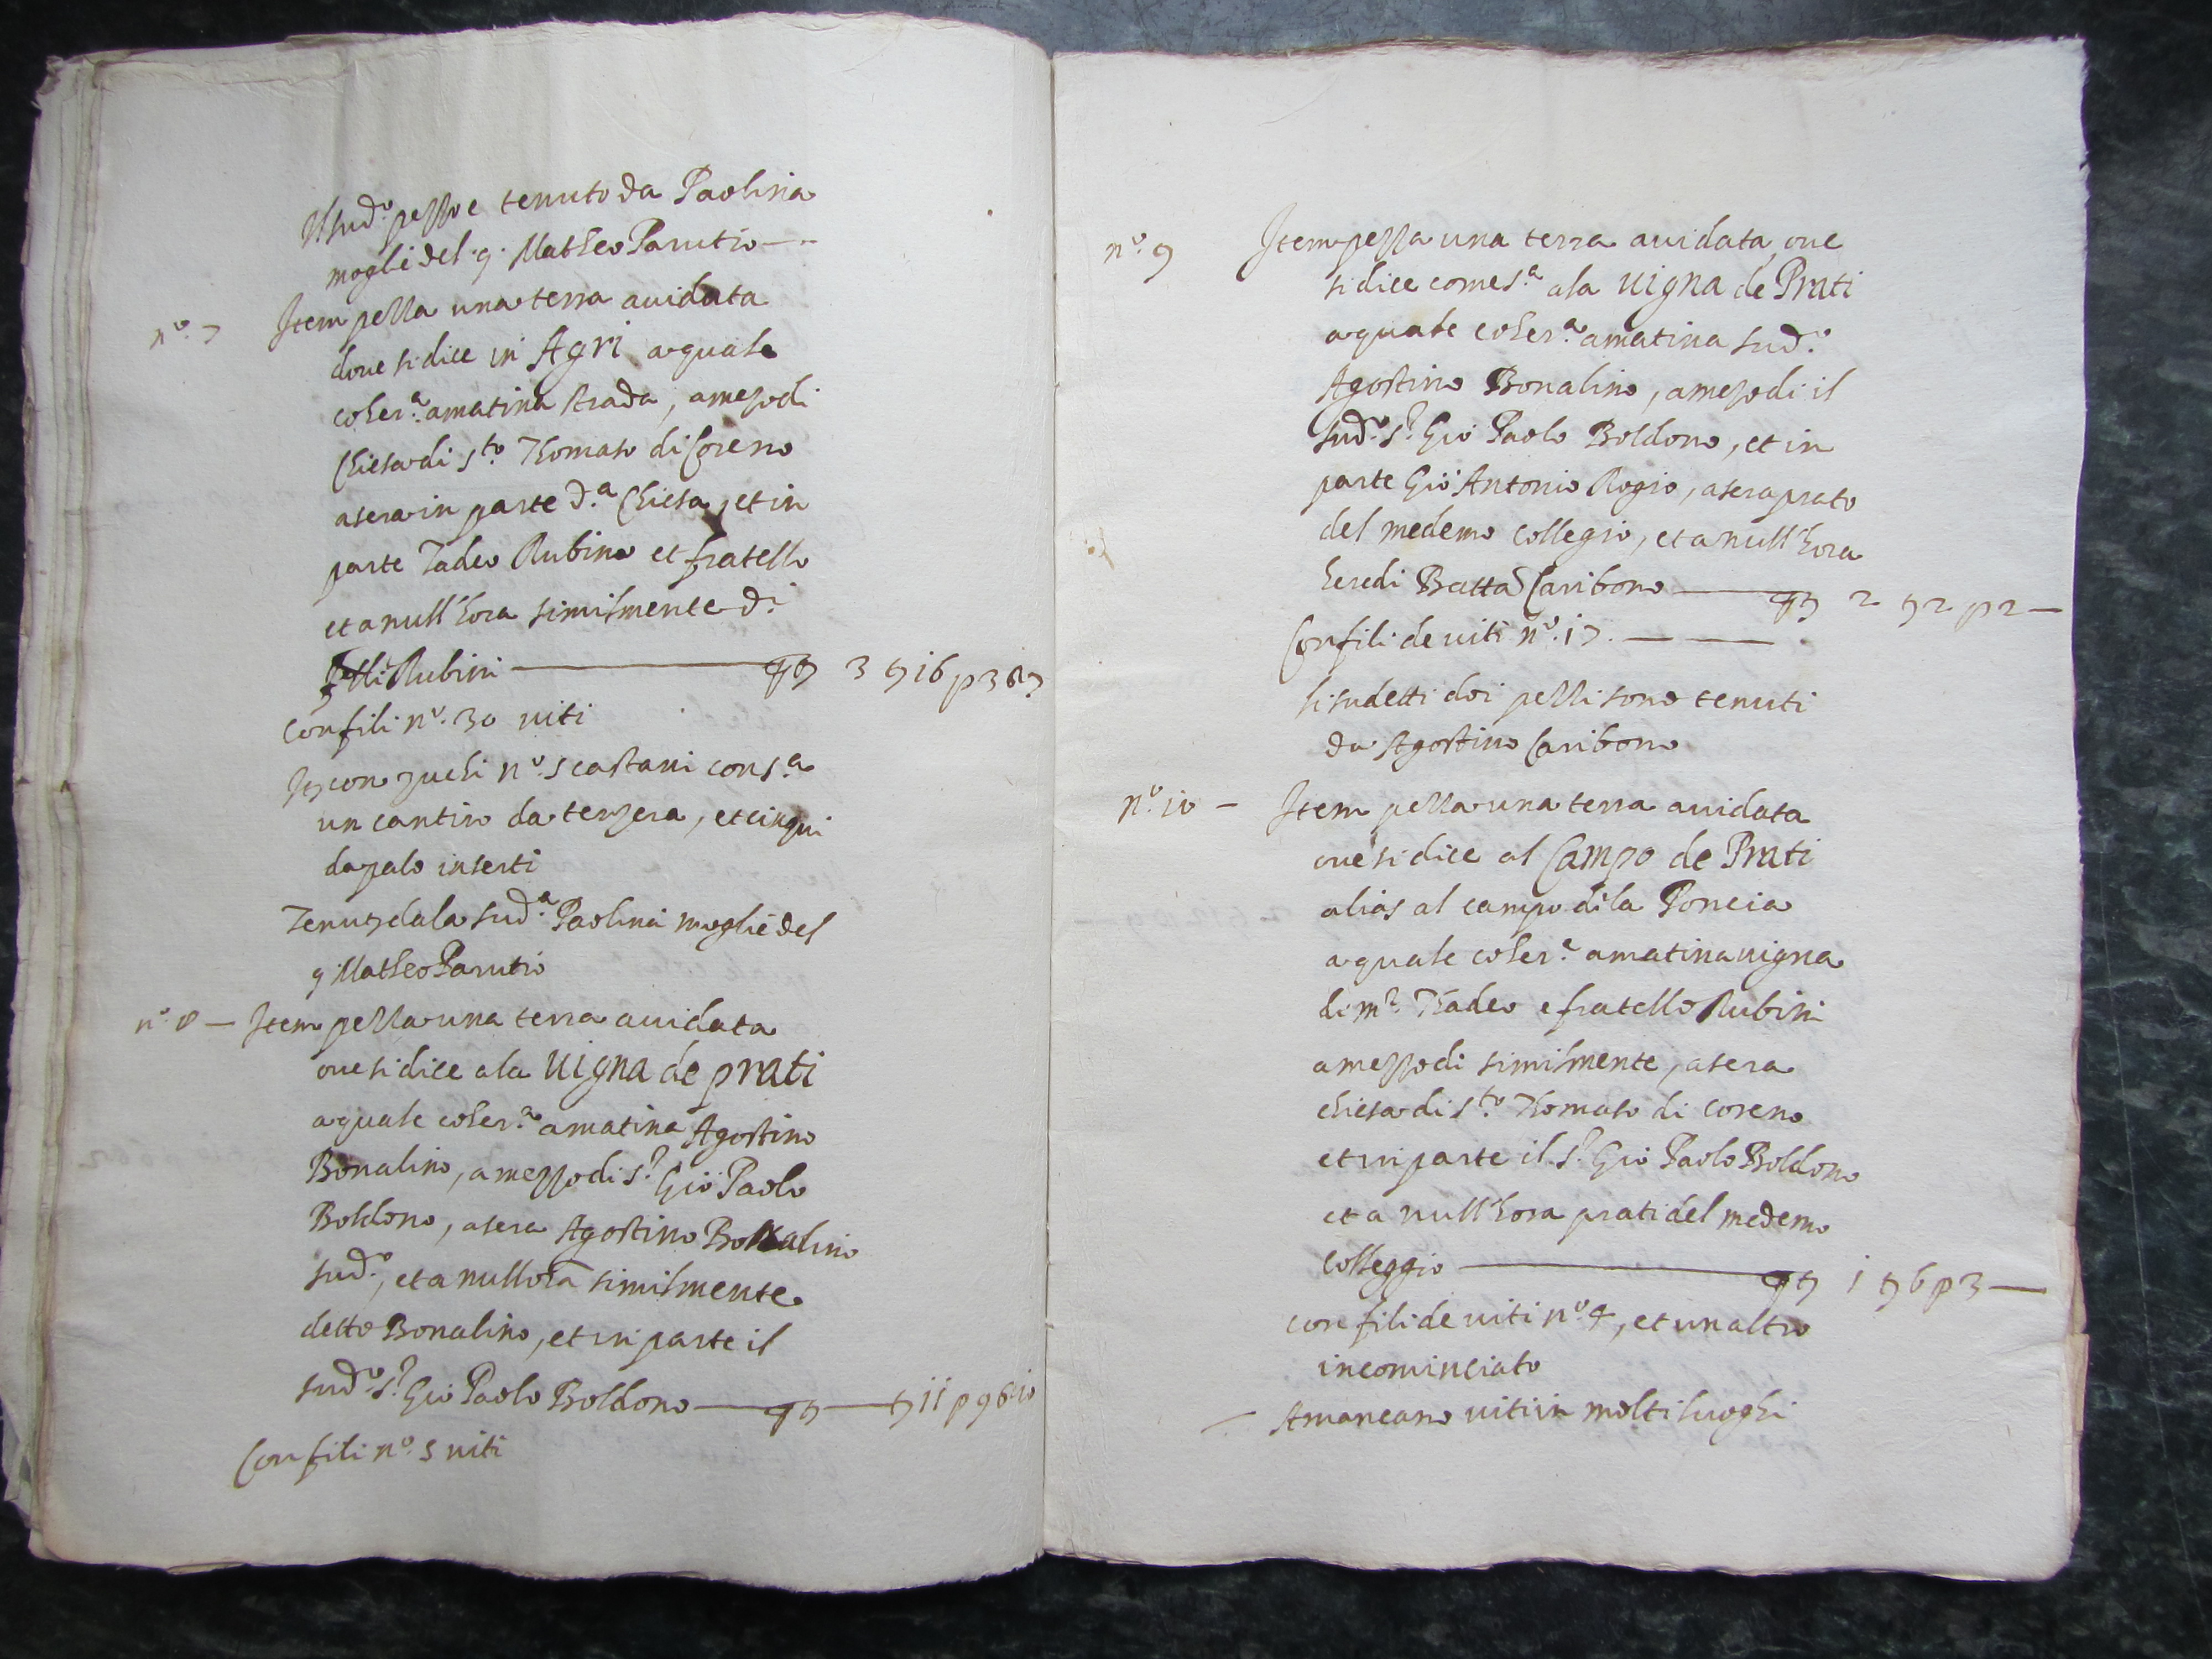 Il sud.º pezzo e tenuto da Paolina
moglie del q. Mattheo Parutio
nº. 7 Item pezza una terra avidata
dove si dice in Agri a quale
coher.ª a matina strada, a mezodi
Chiesa di S.to Thomaso di Coreno
a sera in parte d.ª Chiesa, et in
parte Tadeo Rubino et fratello
et a null'hora similmente di
f.lli Rubini — 3 16 p 3 8 7
Con fili nº. 30 viti
It con zuchi nº. 5 castani cons.ª
un cantiro da terzera, et cinqui
da palo inserti
dala sud.ª Paolina moglie del
q Mattheo Parutio
nº. 8 — Item pezza una terra avidata
ove si dice ala vigna de prati
a quale coher.ª a matina Agostino
Bonalino, a mezzodi s.r Giò Paolo
Boldono, a sera Agostino Bonalino
sud.º, et a nullora similmente
detto Bonalino, et in parte il
sud.º s.r Giò Paolo Boldono — 11 p 9 6 10
Con fili nº. 5 viti
nº. 9 Item pezza una terra avidata ove
si dice come s.ª ala vigna de Prati
a quale coher.ª a matina sud.º
Agostino Bonalino, a mezodi il
sud.º s.r Giò Paolo Boldono, et in
parte Giò Antonio Rogio, a sera prato
del medemo Collegio, et a null'hora
heredi Batta Caribono — 2 2 p 2 —
Con fili de viti nº. 17. — —
li sudetti doi pezzi sono tenuti
da Agostino Caribono
nº. 10 — Item pezza una terra avidata
ove si dice al Campo de Prati
alias al campo di la Poncia
a quale coher.ª a matina vigna
di m.r Thadeo e fratello Rubini
a mezzodi similmente, a sera
chiesa di S.to Thomaso di Coreno
et in parte il s.r Giò Paolo Boldono
et a null'hora prati del medemo
Colleggio — 1 6 p 3 —
con fili de viti nº. 4, et un altro
incominciato
— Amancano viti in molti luoghi